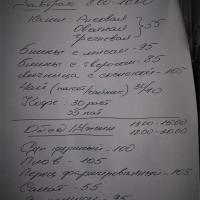 Завтрак 8:00 - 10:00
Каши: Рисовая
Овсяная - 55
Гречневая
Блины с мясом - 95
Блины с творогом - 85
Яичница с сосиской - 105
Чай (пакет/чайник) 35/70
Кофе: 30 раст
35 нат
Обед Ужин 13:00 - 15:00
18:00 - 20:00
Суп куриный - 100
Плов - 105
Перец фаршированный - 105
Салат - 55